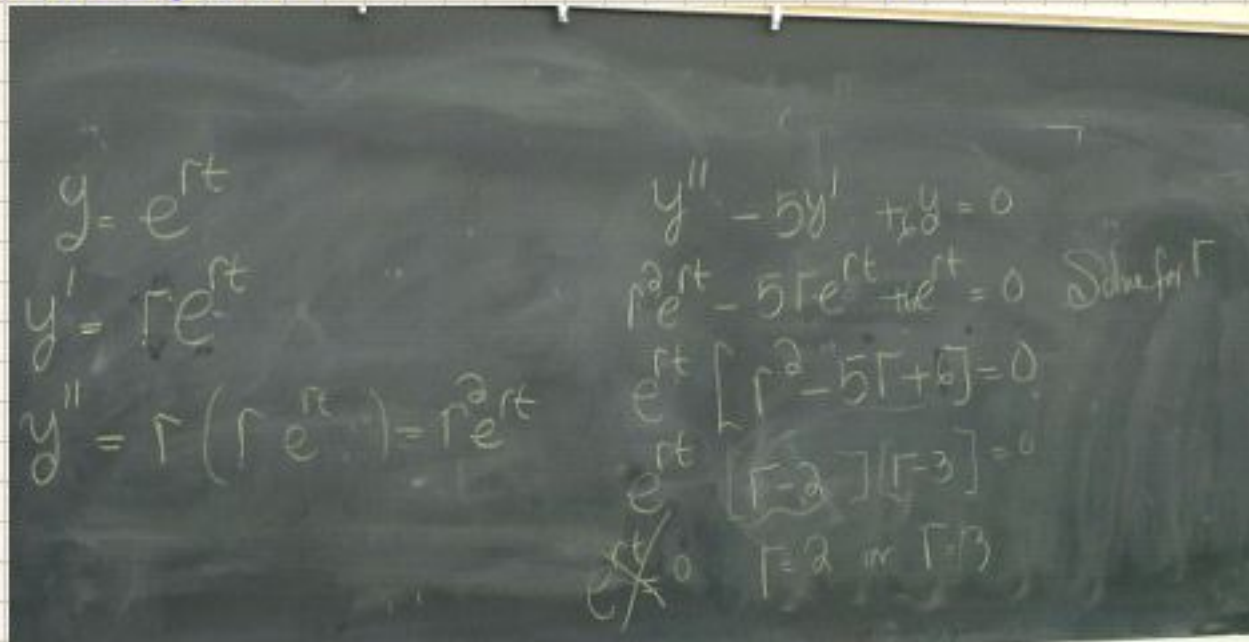 y = e^{rt}
y' = re^{rt}
y'' = r(r e^{rt}) = r^2 e^{rt}
y'' - 5y' + 6y = 0
r^2 e^{rt} - 5re^{rt} + 6e^{rt} = 0 Solve for r
e^{rt} [r^2 - 5r + 6] = 0
e^{rt} [r-2][r-3] = 0
e^{rt} = 0 r = 2 or r = 3